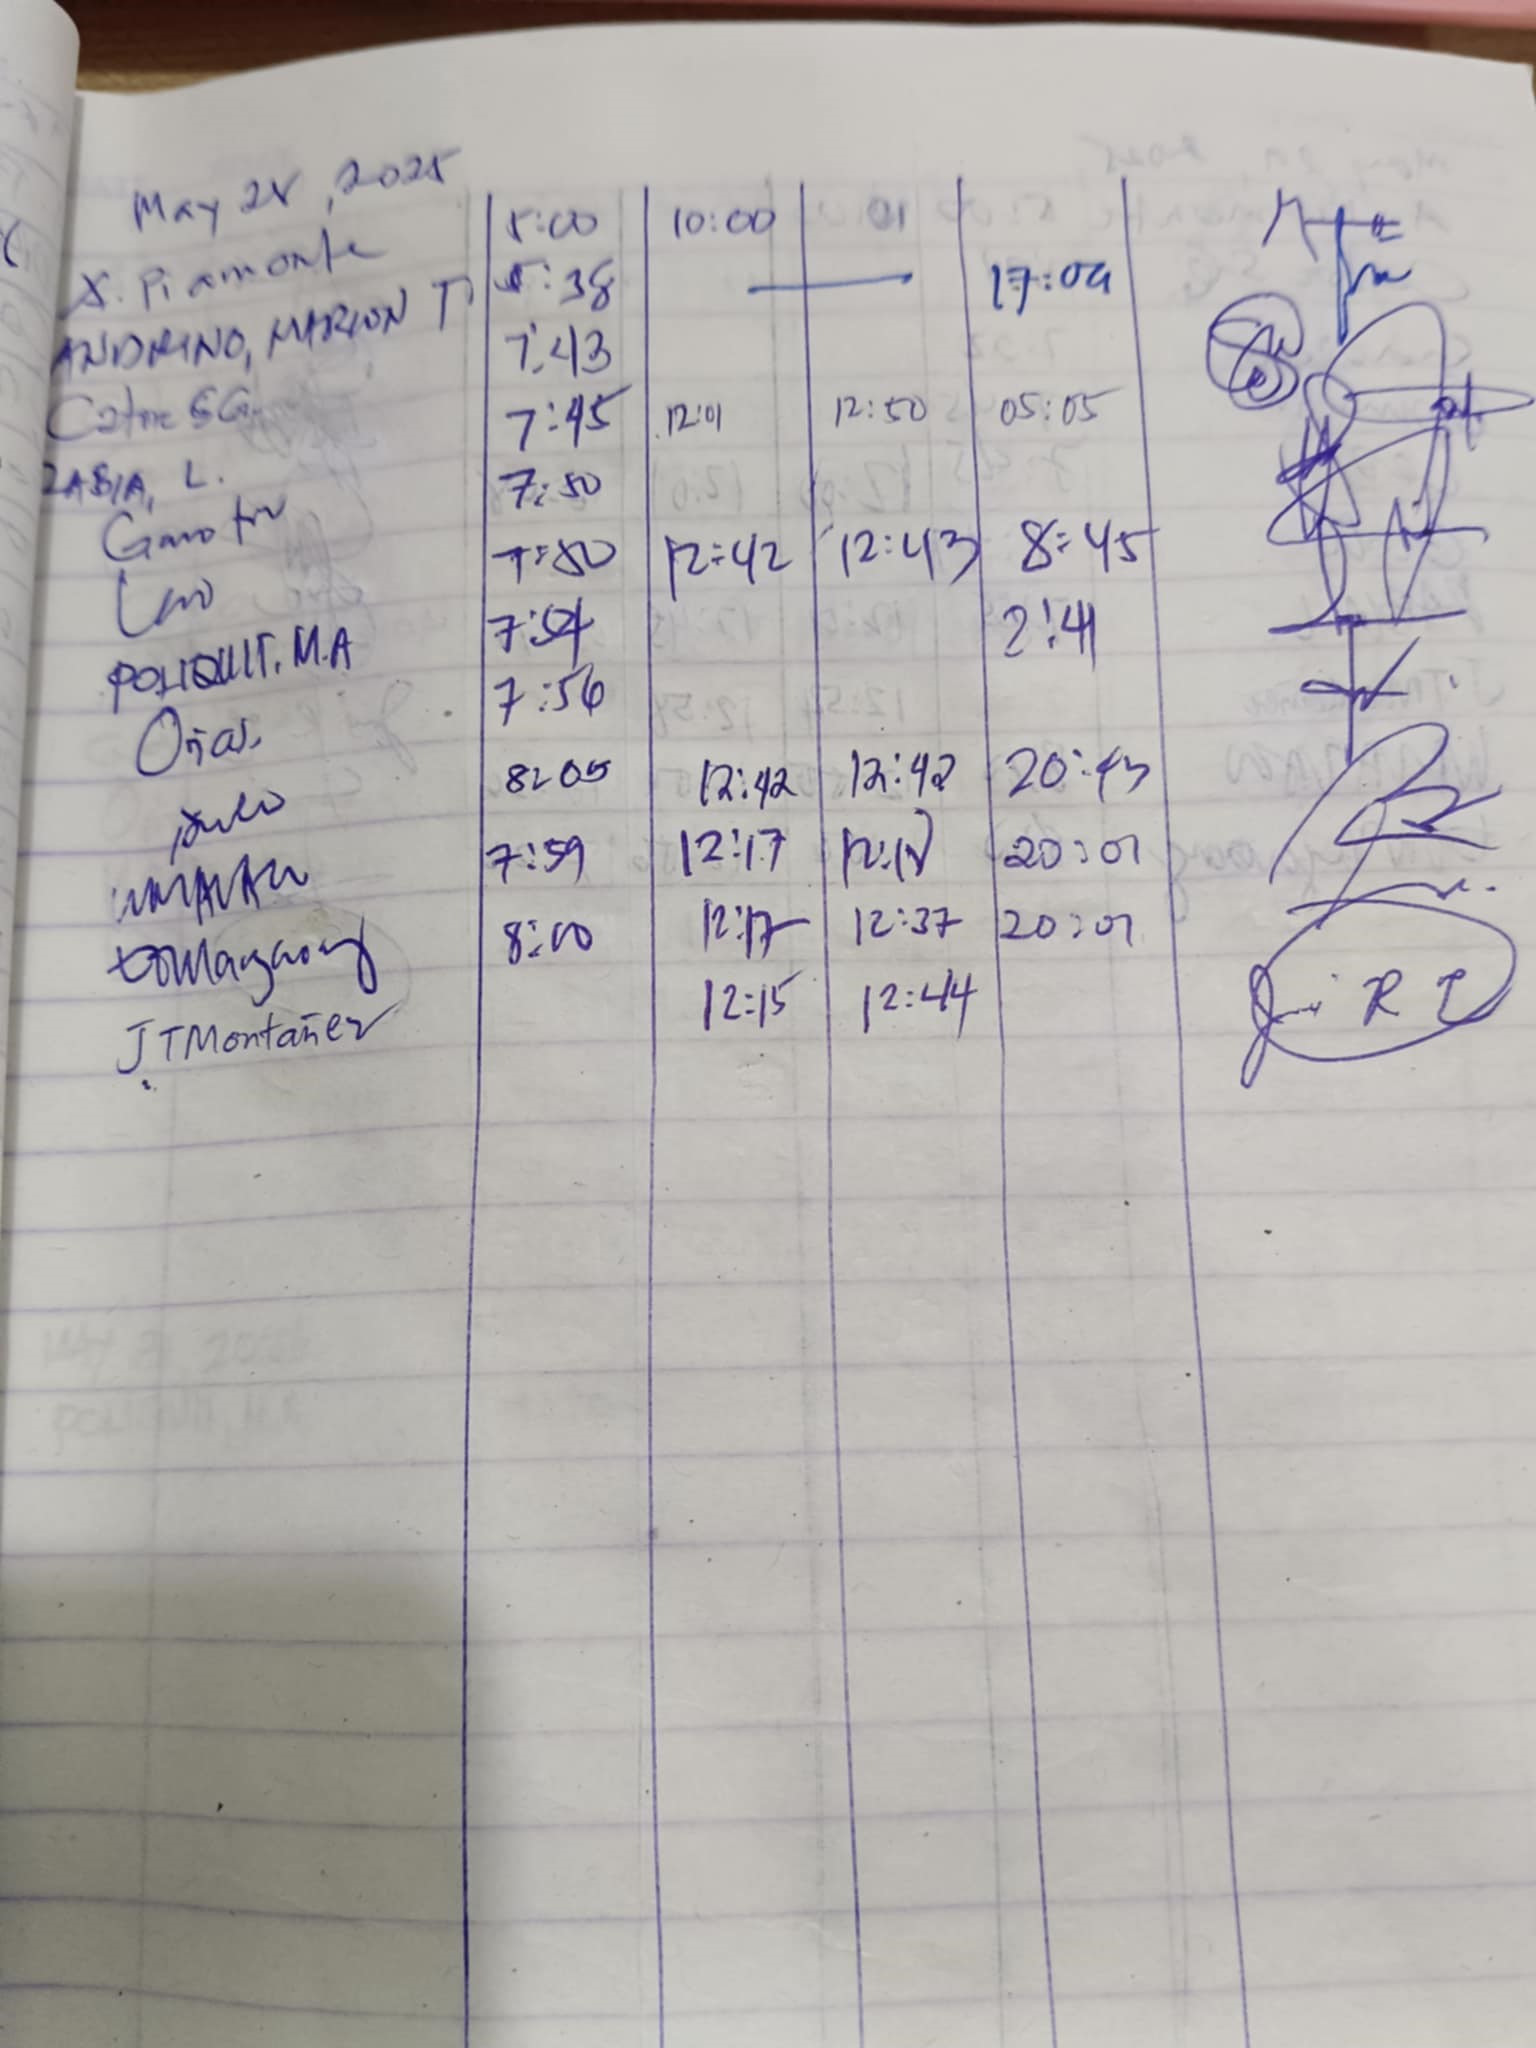 May 28, 2025
X. Piamonte 5:00 10:00
ANDRINO, MARLON T 5:38 17:04
Catne SG. 7:43
ZABIA, L. 7:45 12:01 12:50 05:05
7:50
Lao 7:50 12:42 12:43 8:45
POLIQUIT, M.A 7:54 2:41
Oñas. 7:56
8:05 12:42 12:42 20:43
7:59 12:17 12:18 20:01
8:00 12:17 12:37 20:01
JTMontañez 12:15 12:44